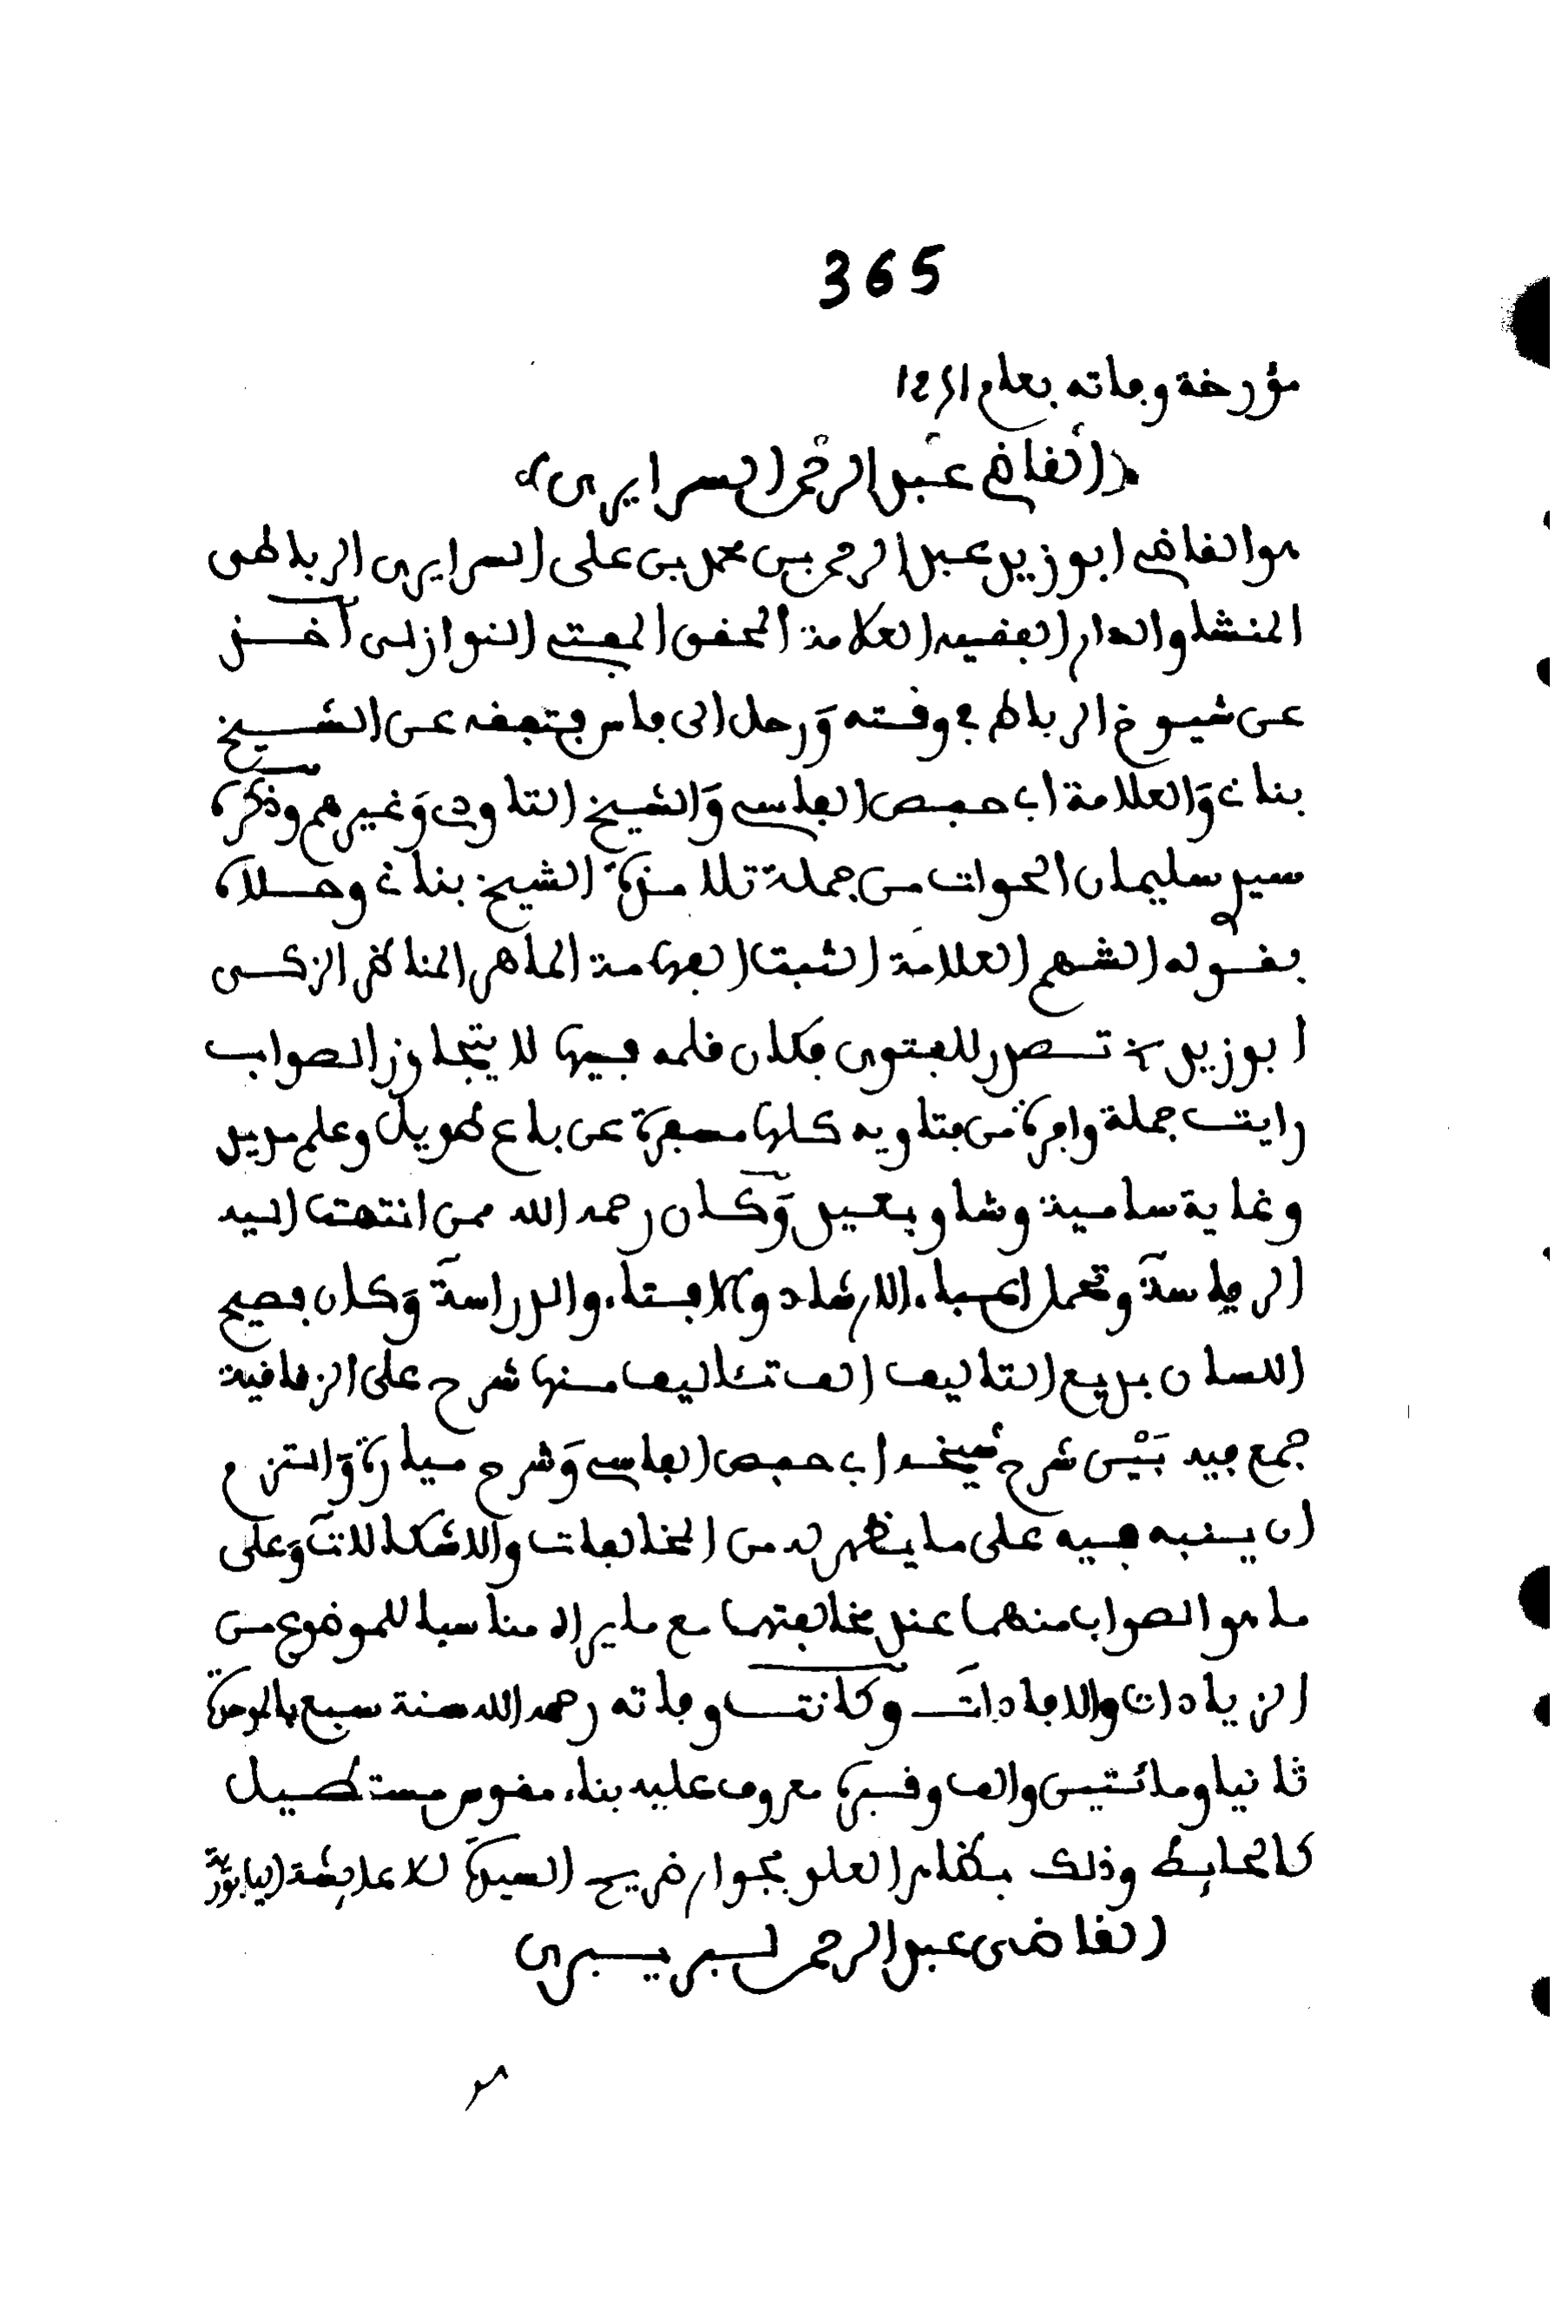 365
مؤرخة وفاته بعام
((القاضي عبد الرحمن السرايري))
هو القاضي ابو زيد عبد الرحمن بن محمد بن علي السرايري الرباطي
المنشا والدار الفقيه العلامة المحقق المفتي النوازلي أخذ
عن شيوخ الرباط في وقته وَرحل الى فاس فتفقه عن الشيخ
بناني وَالعلامة ابي حفص الفاسي وَالشيخ التاودي وَغيرهم وذكره
سيدي سليمان الحوات من جملة تلامذة الشيخ بناني وحلاه
بقوله الشهم العلامة الثبت الفهامة الماهر المناظر الزكي
ابو زيد تصدر للفتوى فكان قلمه فيها لا يتجاوز الصواب
رايت جملة وافرة من فتاويه كلها مسفرة عن باع طويل وعلم مديد
وغاية سامية وشاو بعيد وَكان رحمه الله ممن انتهت اليه
الرياسة وتحمل اعباء الارشاد والافتاء والدراسة وَكان فصيح
اللسان بديع التاليف الف تئاليف منها شرح على الزقاقية
جمع فيه بَيْن شرح شيخه ابي حفص الفاسي وَشرح ميارة وَالتزم
ان ينبه فيه على ما يظهر له من المخالفات والاشكالات وَعلى
ما هو الصواب منهما عند مخالفتهما مع ما يراه مناسبا للموضوع من
الزيادات والافادات وكانت وفاته رحمه الله سنة سبع بالموحدة
ثانيا ومائتين والف وقبره معروف عليه بناء مقوس مستطيل
كالحايط وذلك بمقام العلو بجوار ضريح السيدة للا عايشة اليابورية
القاضي عبد الرحمن لبريبري